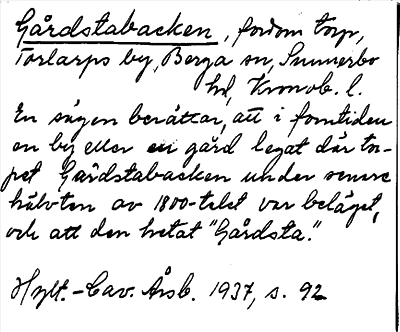 Gårdstabacken, fordom torp,
Torlarps by, Berga sn, Sunnerbo
hd, Kronob. l.
En sägen berättar, att i forntiden
en by eller en gård legat där tor-
pet Gårdstabacken under senare
hälvten av 1800-talet var beläget,
och att den hetat "Gårdsta."
Hylt.-Cav. Årsb. 1937, s. 92